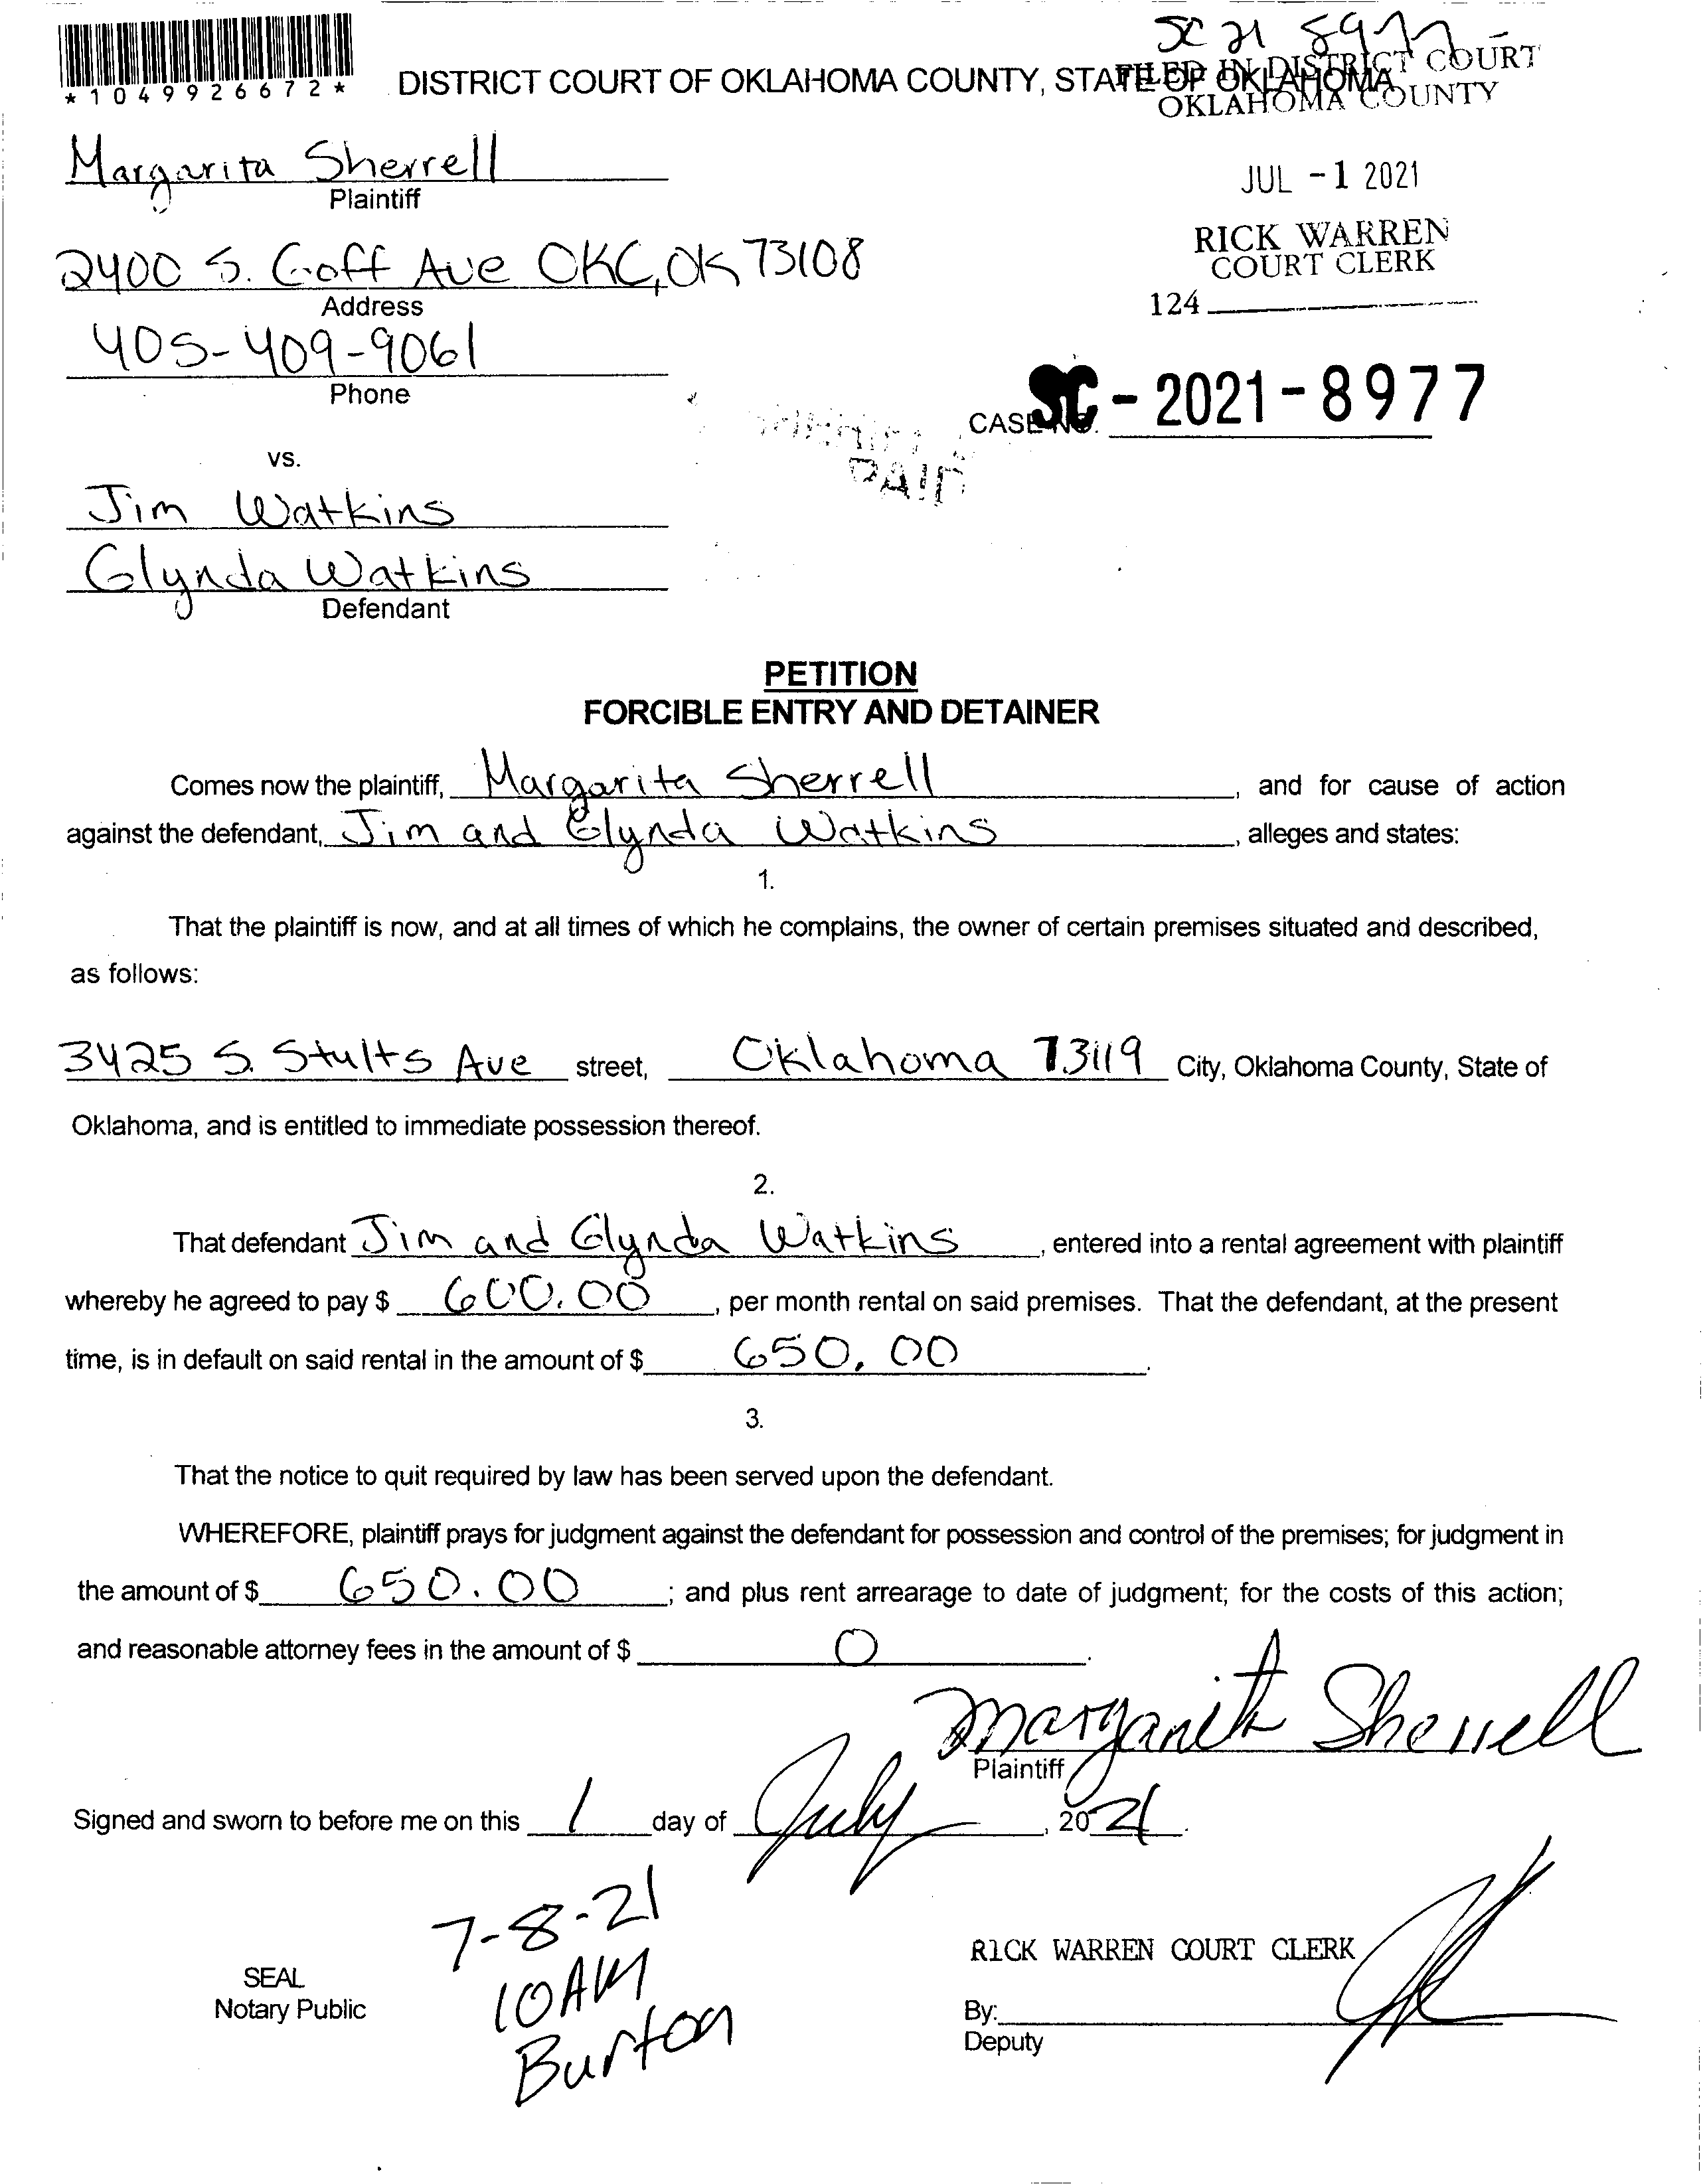 SC 21 8977
*1049926672*
DISTRICT COURT OF OKLAHOMA COUNTY, STATE OF OKLAHOMA
FILED IN DISTRICT COURT
OKLAHOMA COUNTY
Margarita Sherrell
Plaintiff
JUL -1 2021
RICK WARREN
COURT CLERK
2400 S. Goff Ave OKC, OK 73108
Address
124
405-409-9061
Phone
CASE NO. SC-2021-8977
PAID
vs.
Jim Watkins
Glynda Watkins
Defendant
PETITION
FORCIBLE ENTRY AND DETAINER
Comes now the plaintiff, Margarita Sherrell, and for cause of action
against the defendant, Jim and Glynda Watkins, alleges and states:
1.
That the plaintiff is now, and at all times of which he complains, the owner of certain premises situated and described,
as follows:
3425 S. Stults Ave street, Oklahoma 73119 City, Oklahoma County, State of
Oklahoma, and is entitled to immediate possession thereof.
2.
That defendant Jim and Glynda Watkins, entered into a rental agreement with plaintiff
whereby he agreed to pay $ 600.00, per month rental on said premises. That the defendant, at the present
time, is in default on said rental in the amount of $ 650.00.
3.
That the notice to quit required by law has been served upon the defendant.
WHEREFORE, plaintiff prays for judgment against the defendant for possession and control of the premises; for judgment in
the amount of $ 650.00; and plus rent arrearage to date of judgment; for the costs of this action;
and reasonable attorney fees in the amount of $ 0.
Margarita Sherrell
Plaintiff
Signed and sworn to before me on this 1 day of July, 2021.
7-8-21
10AM
Burton
SEAL
Notary Public
RICK WARREN COURT CLERK
By:
Deputy